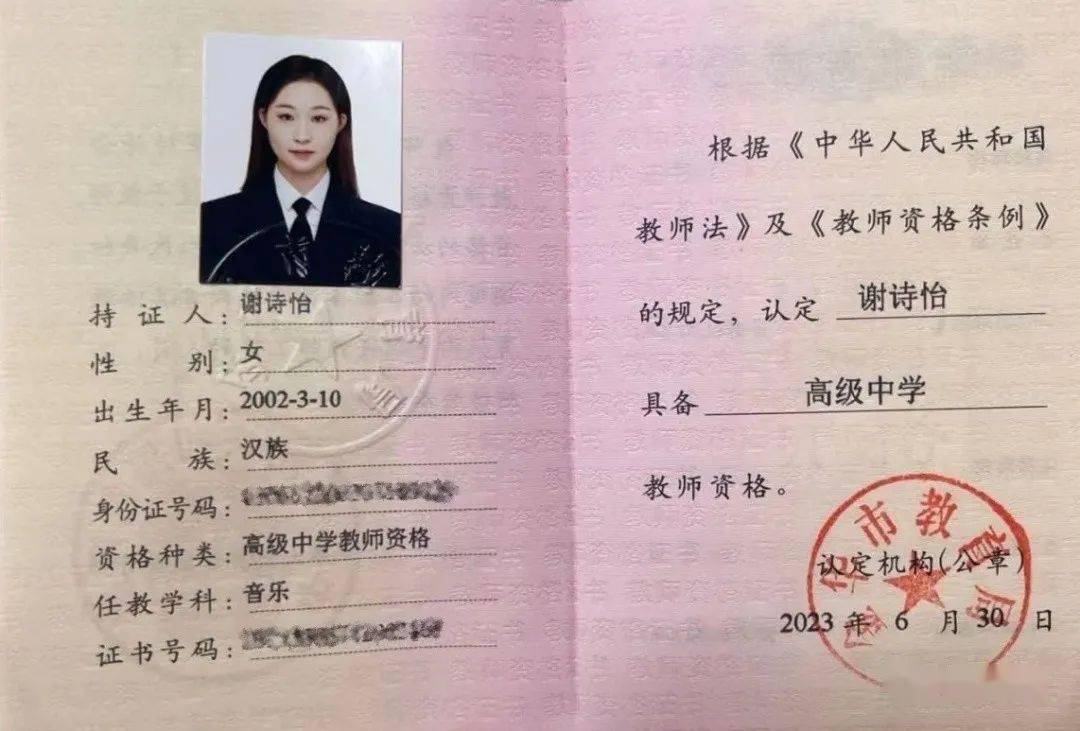 持证人：谢诗怡
性别：女
出生年月：2002-3-10
民族：汉族
身份证号码：
资格种类：高级中学教师资格
任教学科：音乐
证书号码：
根据《中华人民共和国
教师法》及《教师资格条例》
的规定，认定 谢诗怡
具备 高级中学
教师资格。
市教育局
认定机构(公章)
2023 年 6 月 30 日